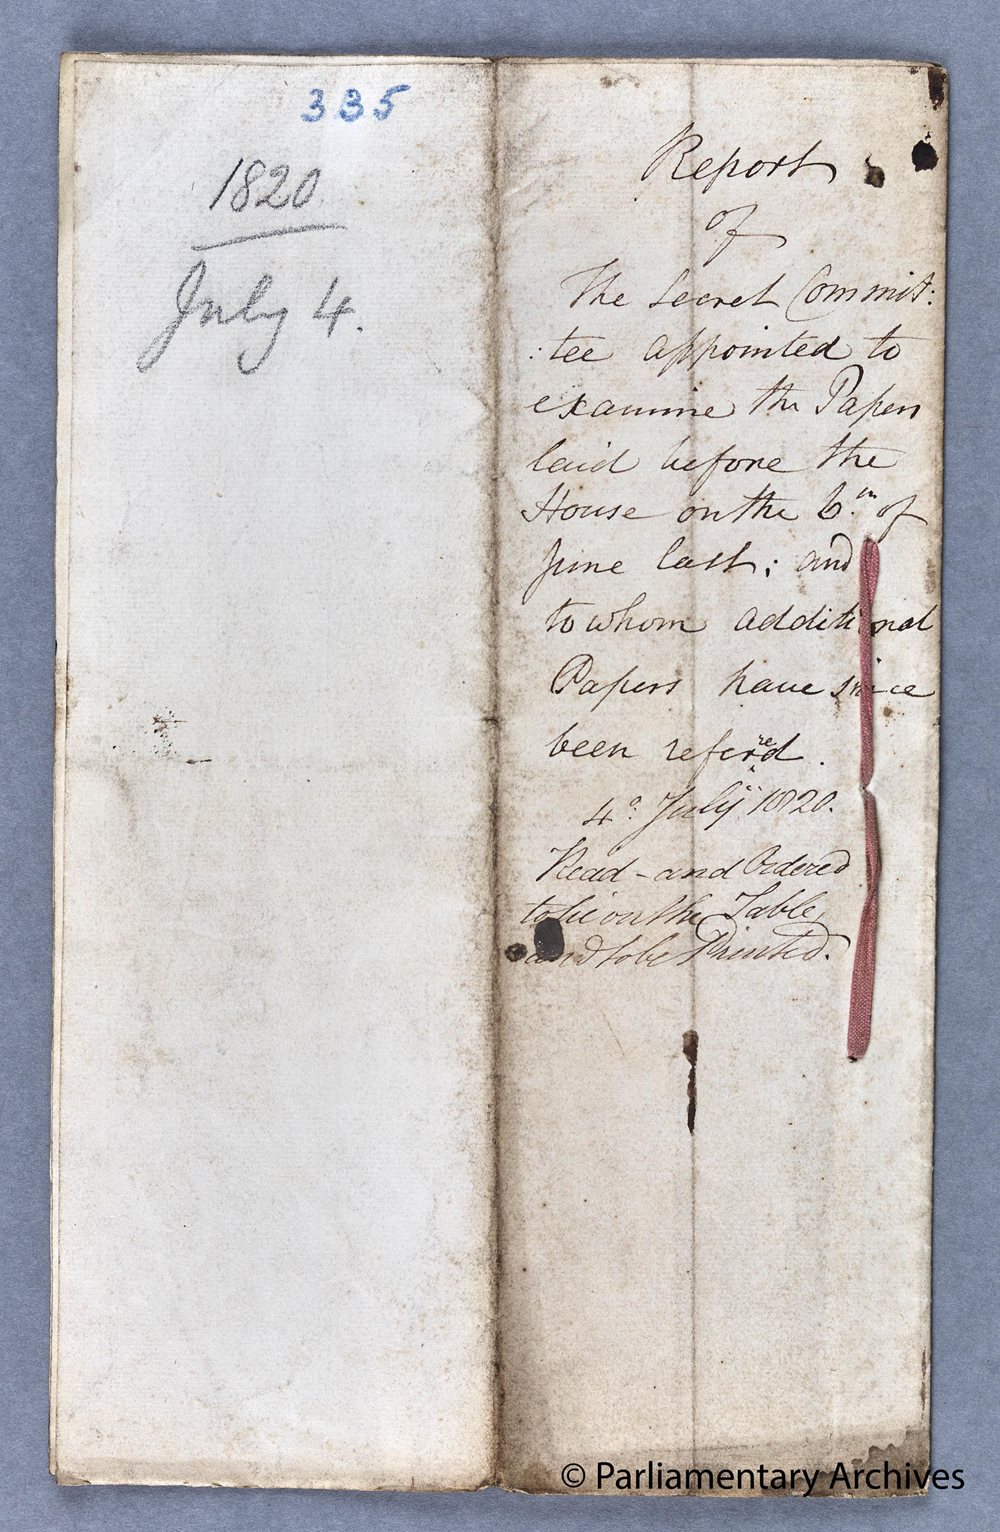 335
1820
July 4.
Report
of
The Secret Commit:
:tee appointed to
examine the Papers
laid before the
House on the 6.th of
June last; and
to whom additional
Papers have since
been referred.
4o: July 1820.
Read - and Ordered
to lie on the Table,
and to be Printed.
© Parliamentary Archives